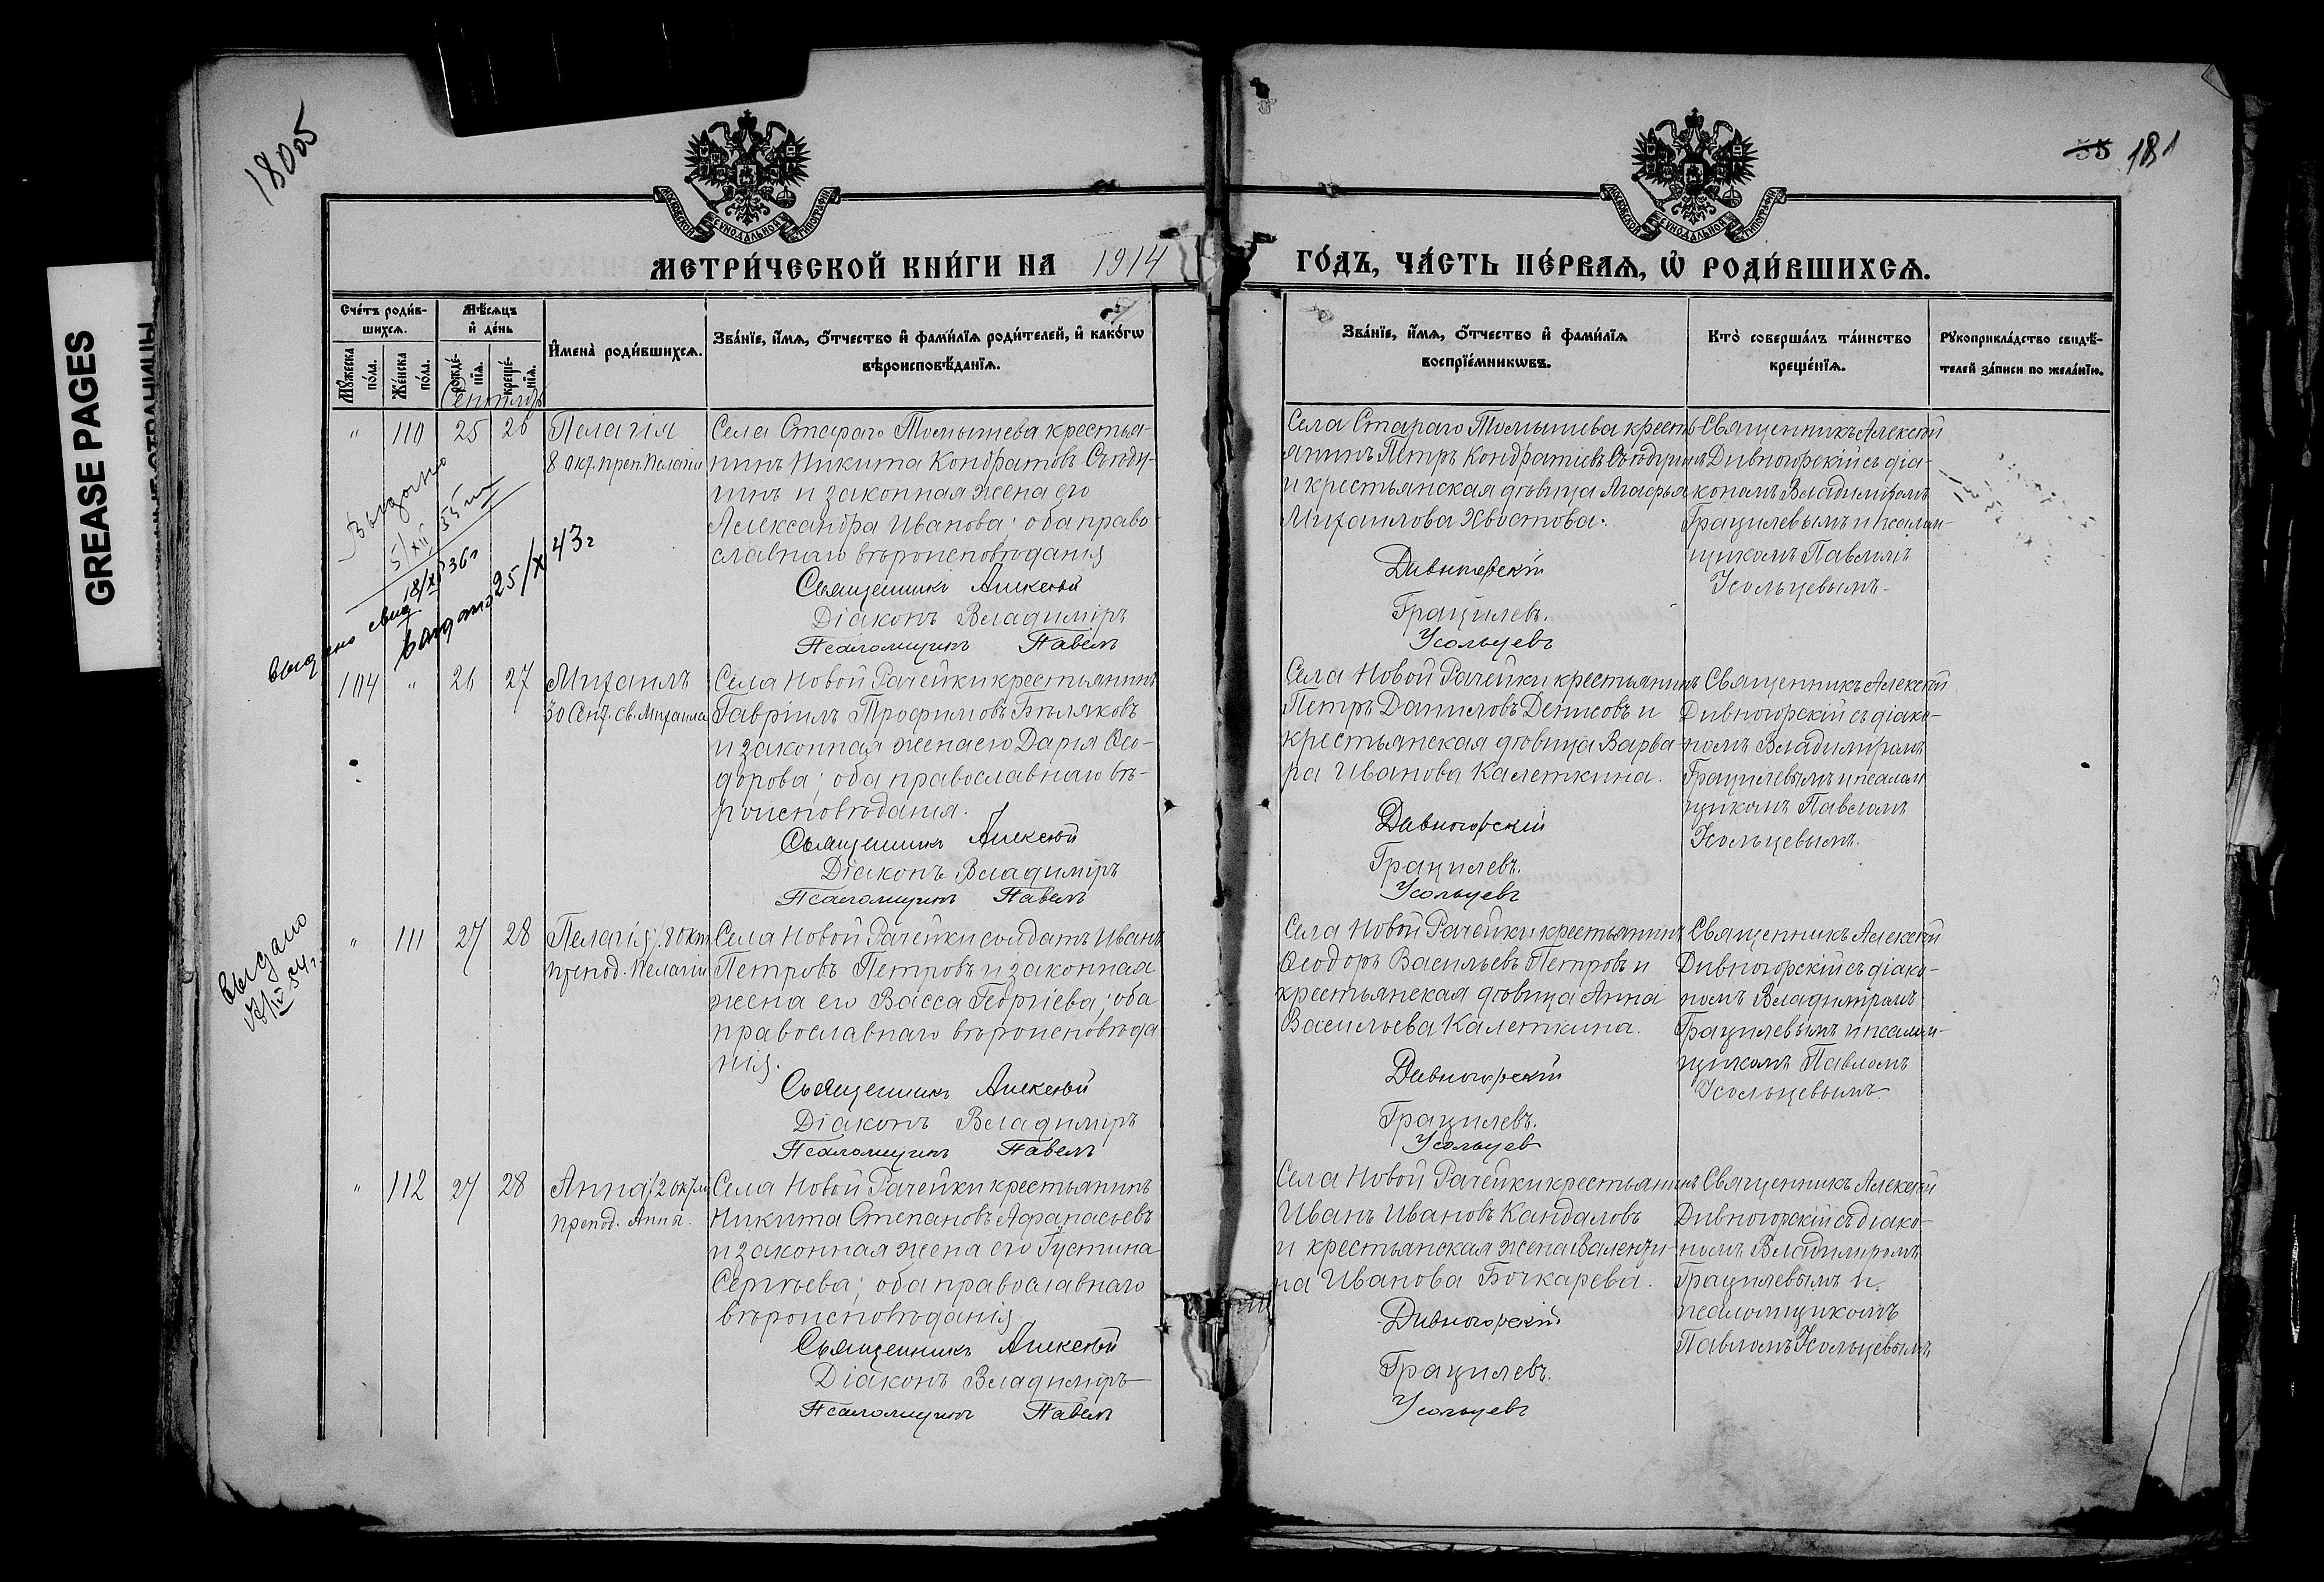 GREASE PAGES
18005
55 181
МОСКОВСКОЙ СѴНОДАЛЬНОЙ ТИПОГРАФІИ
МОСКОВСКОЙ СѴНОДАЛЬНОЙ ТИПОГРАФІИ
МЕТРИ́ЧЕСКОЙ КНИ́ГИ НА 1914 ГО́ДЪ, ЧА́СТЬ ПЕ́РВАѦ, Ѡ҆ РОДИ́ВШИХСѦ.
Сче́тъ роди́в-
шихсѧ.
Мꙋ́жеска по́ла.
Же́нска по́ла.
Мѣ́сѧцъ
и҆ де́нь
рожде́-
нїѧ.
креще́-
нїѧ.
И҆мена̀ роди́вшихсѧ.
Зва́нїе, и҆́мѧ, ѻ҆́тчество и҆ фами́лїѧ роди́телей, и҆ како́гѡ
вѣроисповѣ́данїѧ.
Зва́нїе, и҆́мѧ, ѻ҆́тчество и҆ фами́лїѧ
воспрїе́мникѡвъ.
Кто̀ соверша́лъ та́инство
креще́нїѧ.
Рꙋкоприкла́дство свидѣ́-
телей за́писи по жела́нїю.
Сентябрь
" 110 25 26 Пелагія
8 окт. преп. Пелагіи
Села Стараго Томышева крестья-
нинъ Никита Кондратовъ
и законная жена его
Александра Иванова; оба право-
славнаго вѣроисповѣданія
Священникъ Алексѣй
Діаконъ Владиміръ
Псаломщикъ Павелъ
Села Стараго Томышева кресть-
янинъ Петръ Кондратіевъ
и крестьянская дѣвица Агафья
Михаилова Хвостова.
Дивногорскій
Грацилевъ.
Усольцевъ
Священникъ Алексѣй
Дивногорскій съ діа-
кономъ Владиміромъ
Грацилевымъ и псалом-
щикомъ Павломъ
Усольцевымъ.
Выдано
5/XII 35 г.
выдано свид. 18/XI 36 г
выдано 25/X 43 г
104 " 26 27 Михаилъ
30 Сент. св. Михаила
Села Новой Рачейки крестьянинъ
Гавріилъ Трофимовъ Бѣляковъ
и законная жена его Дарія Ѳео-
дорова; оба православнаго вѣ-
роисповѣданія.
Священникъ Алексѣй
Діаконъ Владиміръ
Псаломщикъ Павелъ
Села Новой Рачейки крестьянинъ
Петръ Даниловъ Денисовъ и
крестьянская дѣвица Варва-
ра Иванова Калеткина.
Дивногорскій
Грацилевъ.
Усольцевъ
Священникъ Алексѣй
Дивногорскій съ діако-
номъ Владиміромъ
Грацилевымъ и псалом
щикомъ Павломъ
Усольцевымъ.
" 111 27 28 Пелагія/. 8 окт
препод. Пелагіи
Села Новой Рачейки солдатъ Иванъ
Петровъ Петровъ и законная
жена его Васса Георгіева; оба
православнаго вѣроисповѣда
нія.
Священникъ Алексѣй
Діаконъ Владиміръ
Псаломщикъ Павелъ
Села Новой Рачейки крестьянинъ
Ѳеодоръ Васильевъ Петровъ и
крестьянская дѣвица Анна
Васильева Калеткина.
Дивногорскій
Грацилевъ.
Усольцев
Священникъ Алексѣй
Дивногорскій съ діако-
номъ Владиміромъ
Грацилевымъ и псалом-
щикомъ Павломъ
Усольцевымъ
выдано
IV 54 г.
" 112 27 28 Анна
препод. Анны.
Села Новой Рачейки крестьянинъ
Никита Степановъ Афанасьевъ
и законная жена его Густина
Сергѣева; оба православнаго
вѣроисповѣданія.
Священникъ Алексѣй
Діаконъ Владиміръ
Псаломщикъ Павелъ
Села Новой Рачейки крестьянинъ
Иванъ Ивановъ Кандаловъ
и крестьянская жена Валенти-
на Иванова Бочкарева.
Дивногорскій
Грацилевъ.
Усольцевъ
Священникъ Алексѣй
Дивногорскій съ діако-
номъ Владиміромъ
Грацилевымъ и
псаломщикомъ
Павломъ Усольцевымъ